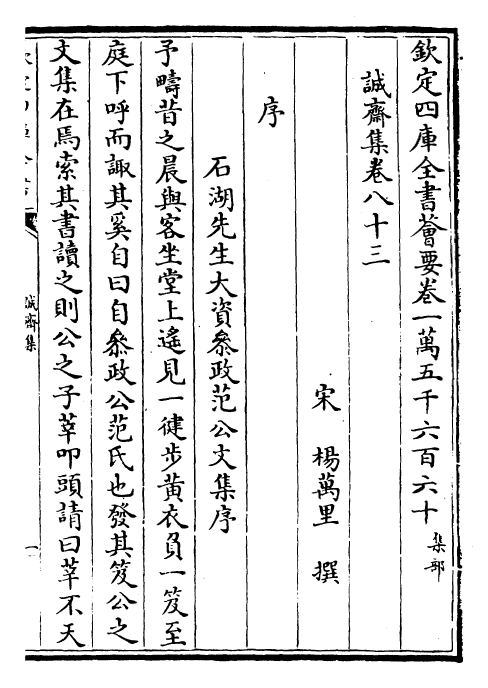 欽定四庫全書薈要卷一萬五千六百六十 集部
誠齋集卷八十三
宋 楊萬里 撰
序
石湖先生大資參政范公文集序
予疇昔之晨與客坐堂上遙見一健步黄衣負一笈至
庭下呼而諏其奚自曰自參政公范氏也發其笈公之
文集在焉索其書讀之則公之子莘叩頭請曰莘不天
誠齋集
一